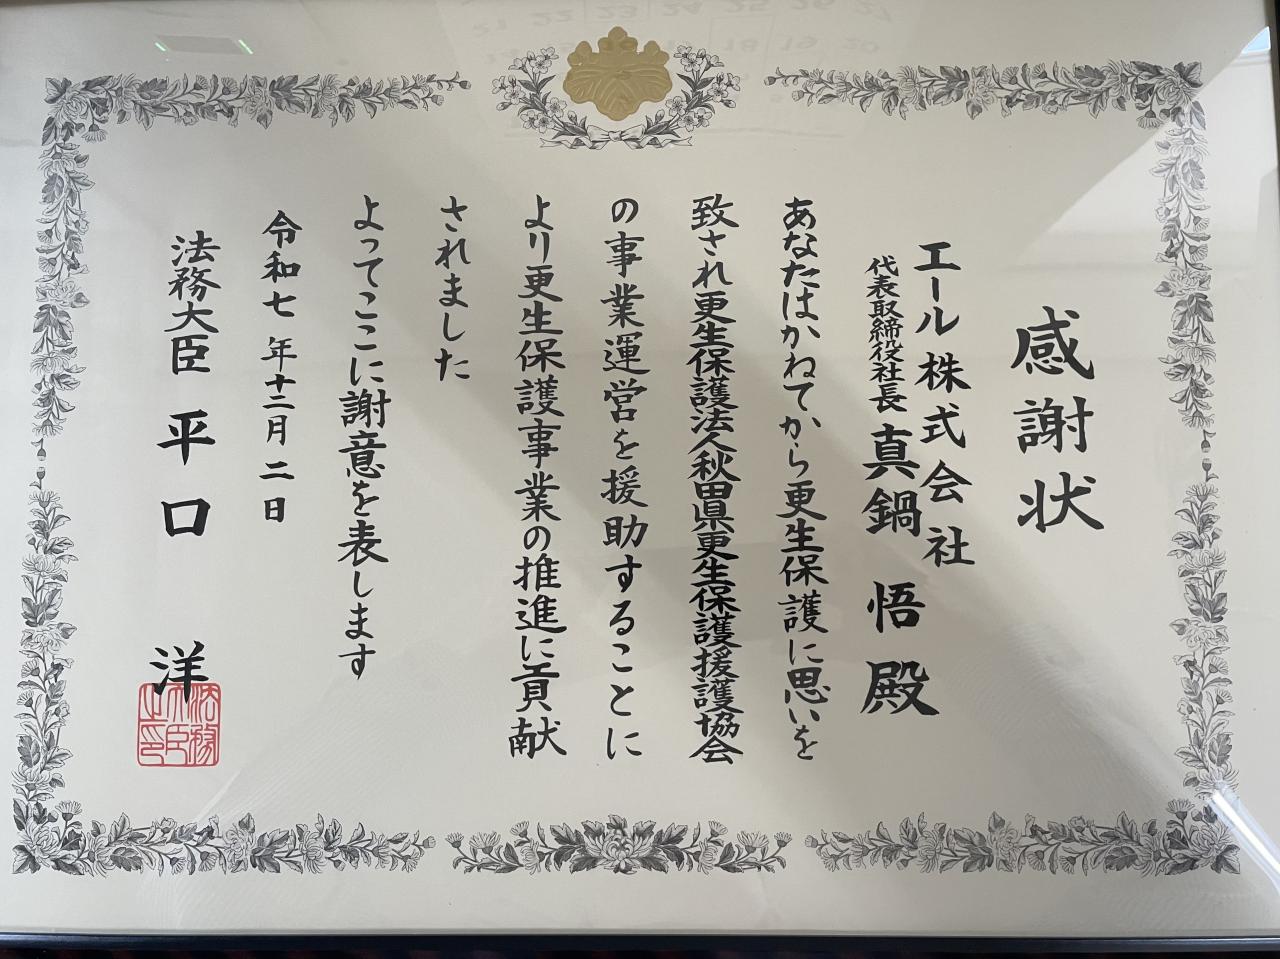 感謝状
エール株式会社
代表取締役社長 真鍋 悟 殿
あなたはかねてから更生保護に思いを
致され更生保護法人秋田県更生保護援護協会
の事業運営を援助することに
より更生保護事業の推進に貢献
されました
よってここに謝意を表します
令和七年十二月二日
法務大臣 平口 洋
法務大臣之印